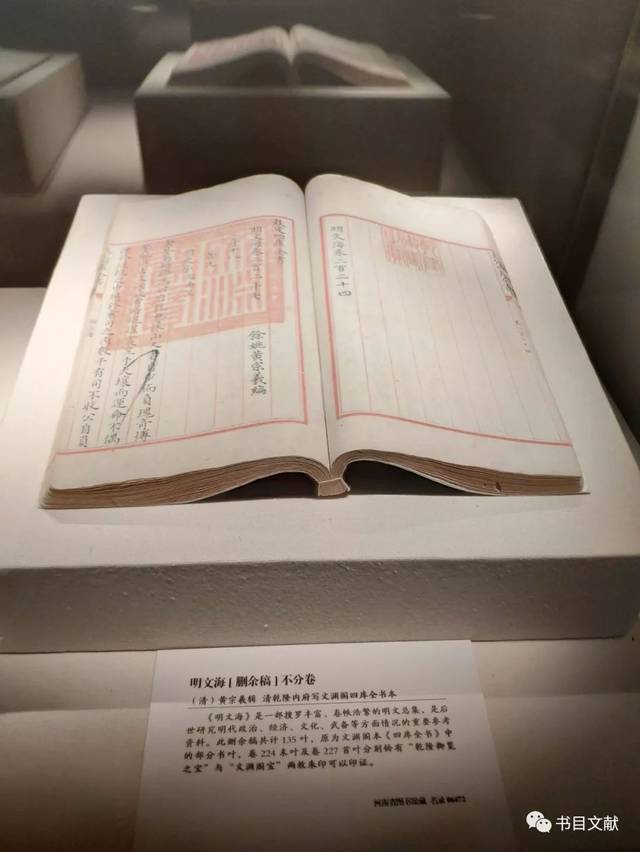 明文海卷二百二十四
欽定四庫全書
明文海卷二百二十七
餘姚黃宗羲編
明文海［删余稿］不分卷
（清）黄宗羲辑 清乾隆内府写文渊阁四库全书本
《明文海》是一部搜罗丰富、卷帙浩繁的明文总集，是后
世研究明代政治、经济、文化、武备等方面情况的重要参考
资料。此删余稿共计 135 叶，原为文渊阁本《四库全书》中
的部分书叶，卷 224 末叶及卷 227 首叶分别钤有“乾隆御览
之宝”与“文渊阁宝”两枚朱印可以印证。
河南省图书馆藏 名录 06472
书目文献